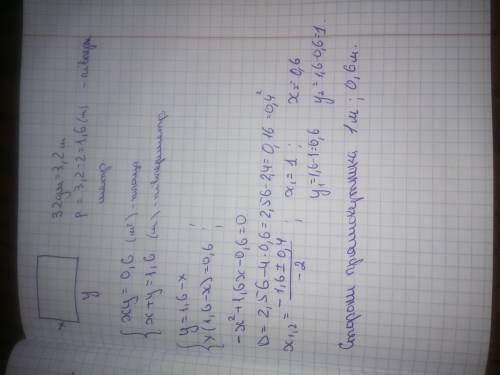 x
y
32дм=3,2 м
p = 3,2:2=1,6 (м) - півпериметр
{ xy = 0,6 (м²) - площа
{ x+y = 1,6 (м) - півпериметр
{ y = 1,6 - x
{ x(1,6-x) = 0,6 ;
-x² + 1,6x - 0,6 = 0
D = 2,56 - 4·0,6 = 2,56 - 2,4 = 0,16 = 0,4²
x₁,₂ = (-1,6 ± 0,4) / -2 ; x₁ = 1 ; x₂ = 0,6
y₁ = 1,6-1 = 0,6 y₂ = 1,6-0,6 = 1.
Сторони прямокутника 1м ; 0,6м.